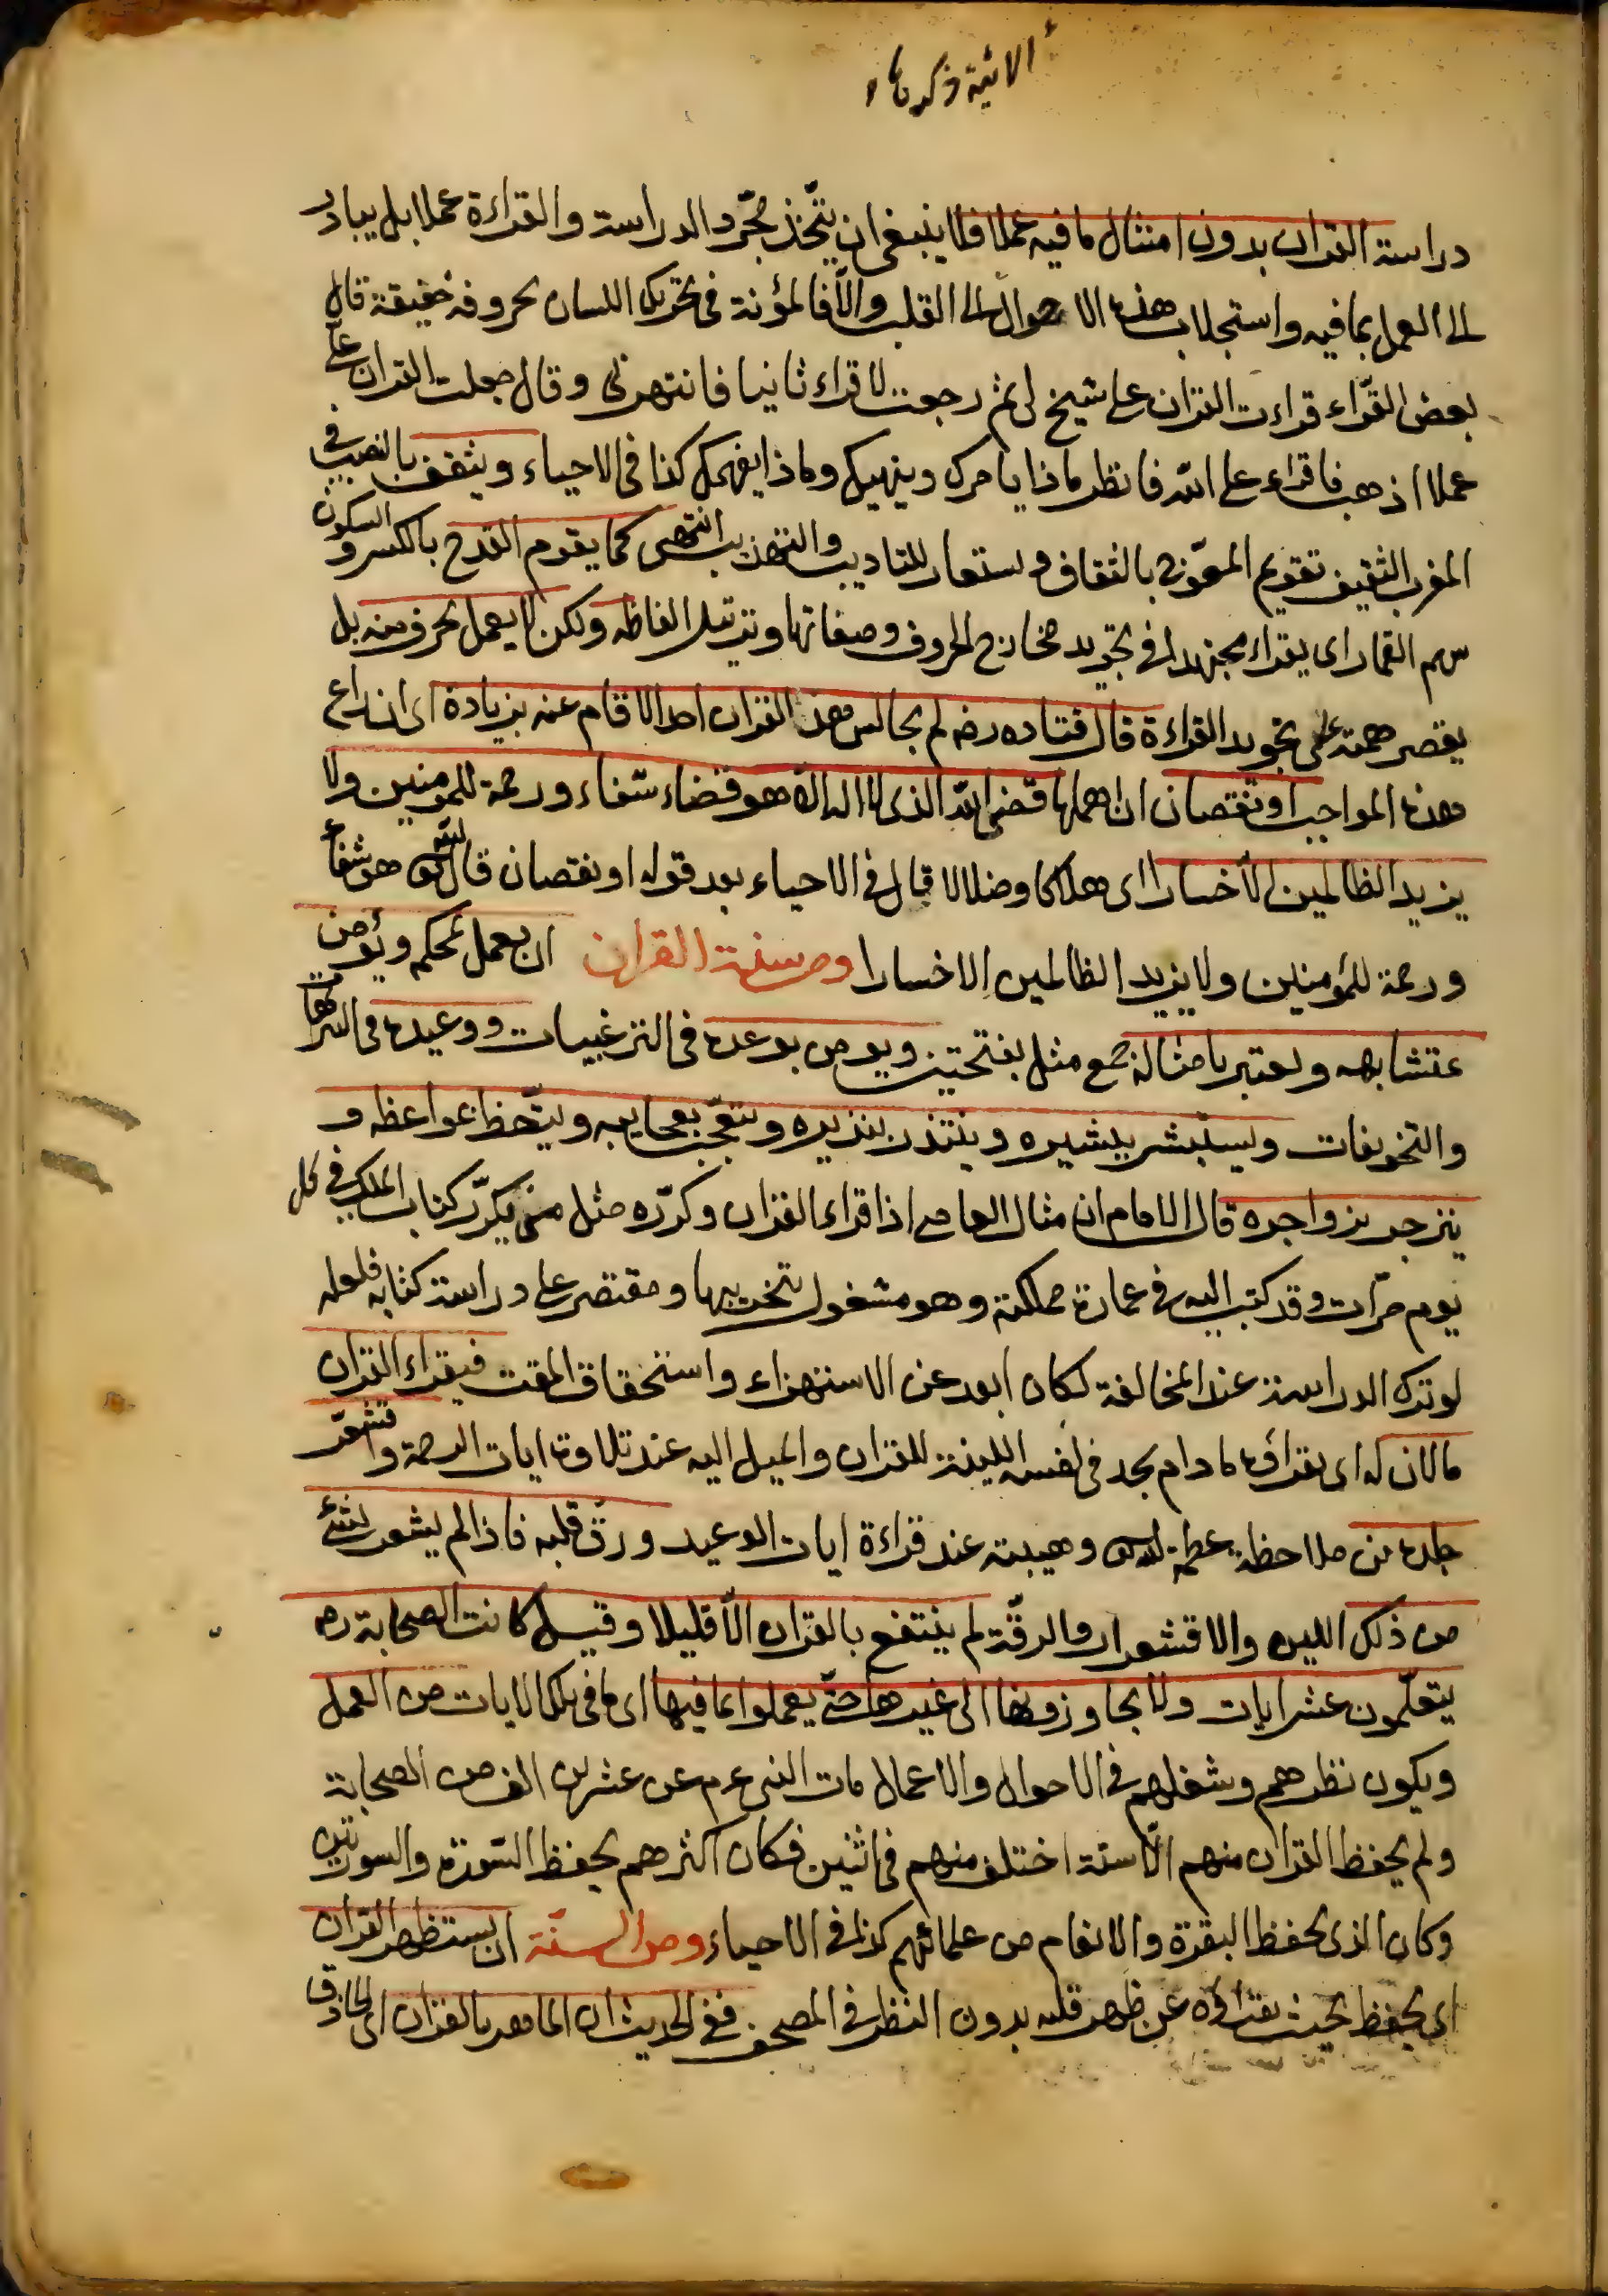 الاثية ذكرناه
دراسة القران بدون امتثال ما فيه عملا فلا ينبغي ان يتّخذ مجرّد الدراسة والقراءة عملا بل يبادر
الى العمل بما فيه واستجلاب هذه الاحوال الى القلب والّا فالمؤنة في تحريك اللسان بحروفه خفيفة قال
بعض القرّاء قراءت القران على شيخ لي ثم رجعت لاقراء ثانيا فانتهرني وقال جعلت القران عليّ
عملا اذهب فاقراء على الله فانظر ماذا يامرك وينهيك وماذا يفهمك كذا في الاحياء ويثقف بالنصب في
المغرب التثقيف تقويم المعوّج بالثقاف ويستعار للتاديب والتهذيب انتهى كما يقوم القدح بالكسر والسكون
سهم القمار اى يقراء مجتهدا في تجويد مخارج الحروف وصفاتها وترتيل الفاظه ولكن لا يعمل بحرف منه بل
يقصر همته على تجويد القراءة قال قتاده رضه لم يجالس هذ القران احد الا قام عنه بزيادة اى ان راع
هذه المواجب او نقصان ان اهملها قضى الله الذى لا اله الا هو قضاء شفاء ورحمة للمومنين ولا
يزيد الظالمين الّا خسارا اى هلاكا وضلالا قال في الاحياء بعد قوله او نقصان قال الله تع هو شفاء
ورحمة للمؤمنين ولا يزيد الظالمين الا خسارا ومن سنة القران ان يعمل بمحكم ويؤمن
بمتشابهه ويعتبر بامثاله جمع مثل بفتحتين ويومن بوعده في الترغيبات ووعيده في الترهيبات
والتخويفات ويستبشر ببشيره وينتذر بنذيره ويتعجّب بعجايبه ويتّعظ بمواعظه و
ينزجر بزواجره قال الامام ان مثال العاصى اذا قراء القران وكرّره مثل من يكرّر كتاب الملك في كل
يوم مرّات وقد كتب اليه في عمارة مملكته وهو مشغول بتخريبها ومقتصر على دراسة كتابه فلعله
لو ترك الدراسة عند المخالفة لكان ابعد عن الاستهزاء واستحقاق المقت فيقراء القران
ما لان له اى يقراؤه ما دام يجد في نفسه اللينة للقران والميل اليه عند تلاوة ايات الرحمة واقشعرّ
جلده من ملاحظة عظمة الله وهيبته عند قراءة ايات الوعيد ورقّ قلبه فاذا لم يشعر بشئ
من ذلك اللين والاقشعرار والرقّة لم ينتفع بالقران الّا قليلا وقيل كانت الصحابة رض
يتعلّمون عشر ايات ولا يجاوزونها الى غيرها حتّى يعملوا بما فيها اى ما في تلك الايات من العمل
ويكون نظرهم وشغلهم في الاحوال والاعمال مات النبى عم عن عشرين الف من الصحابة
ولم يحفظ القران منهم الّا ستة اختلف منهم في اثنين فكان اكثرهم يحفظ السّورة والسورتين
وكان الذى يحفظ البقرة والانعام من علمائهم كذا في الاحياء ومن السنّة ان يستظهر القران
اى يحفظ بحيث يقراؤه عن ظهر قلبه بدون النظر في المصحف ففى الحديث ان الماهر بالقران اى الحاذق